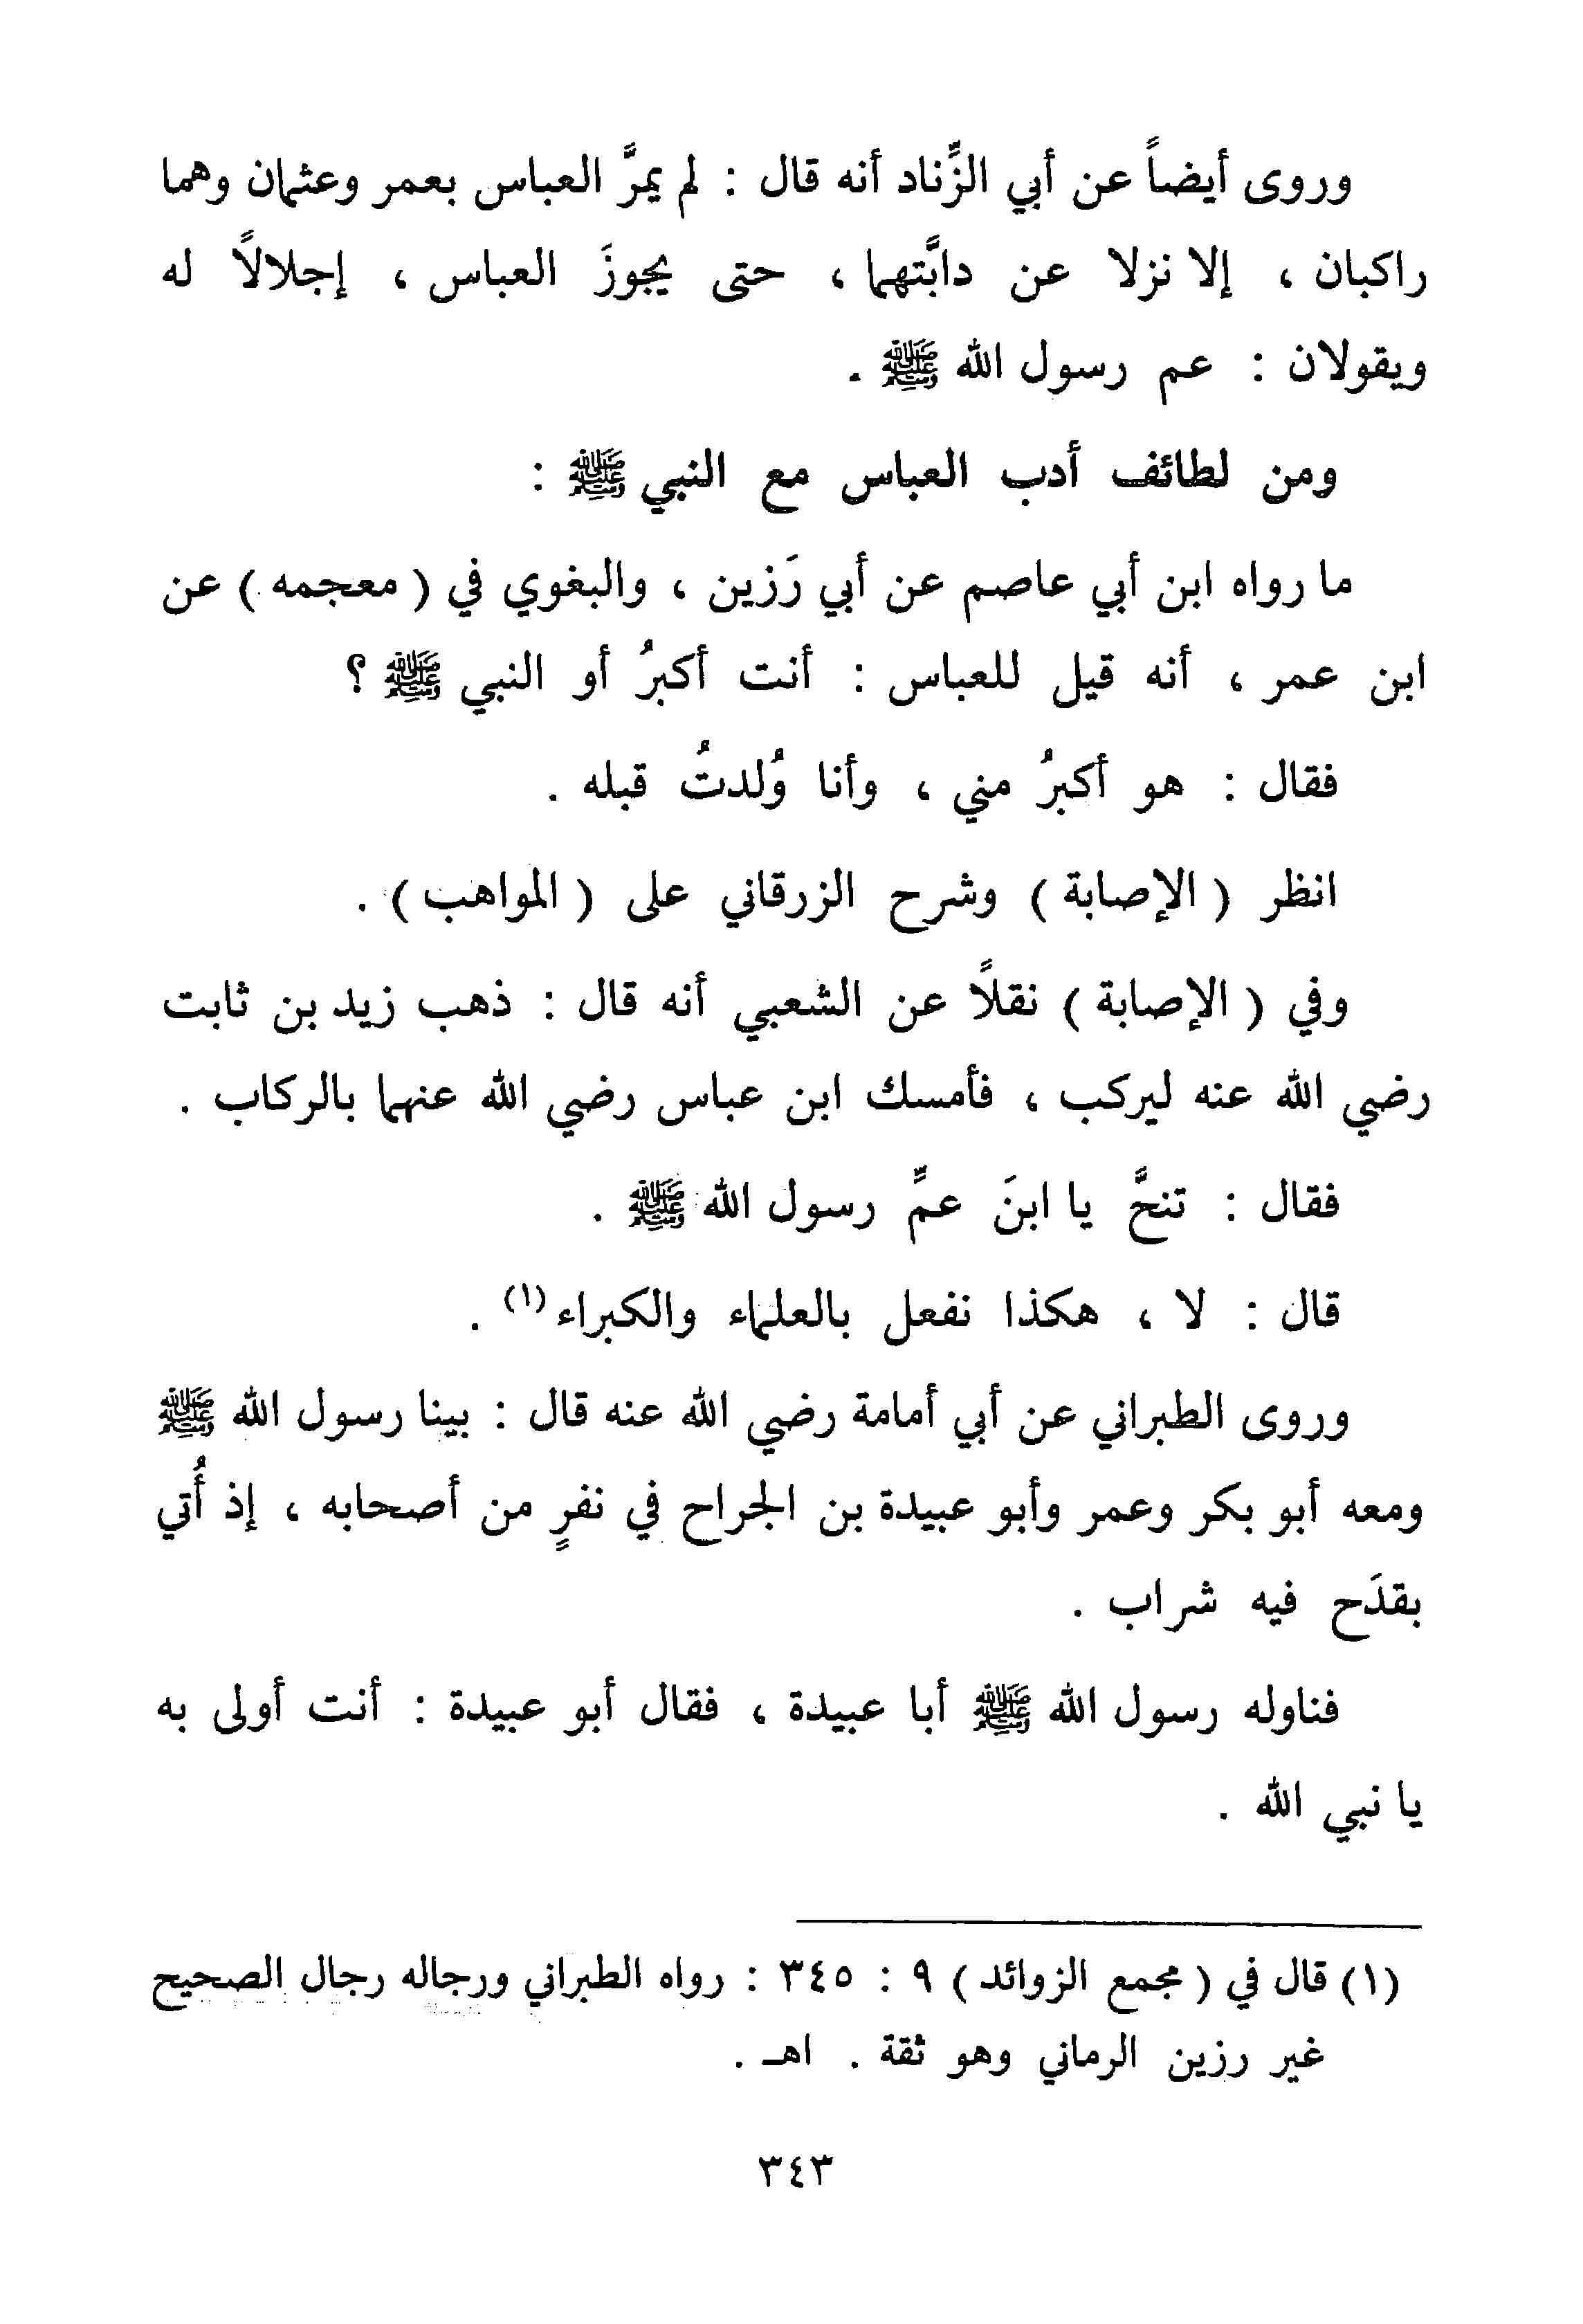 وروى أيضاً عن أبي الزِّناد أنه قال : لم يمرَّ العباس بعمر وعثمان وهما
راكبان ، إلا نزلا عن دابَّتهما ، حتى يجوزَ العباس ، إجلالاً له
ويقولان : عم رسول الله ﷺ .
ومن لطائف أدب العباس مع النبي ﷺ :
ما رواه ابن أبي عاصم عن أبي رَزين ، والبغوي في ( معجمه ) عن
ابن عمر ، أنه قيل للعباس : أنت أكبرُ أو النبي ﷺ ؟
فقال : هو أكبرُ مني ، وأنا وُلدتُ قبله .
انظر ( الإصابة ) وشرح الزرقاني على ( المواهب ) .
وفي ( الإصابة ) نقلاً عن الشعبي أنه قال : ذهب زيد بن ثابت
رضي الله عنه ليركب ، فأمسك ابن عباس رضي الله عنهما بالركاب .
فقال : تنحَّ يا ابنَ عمِّ رسول الله ﷺ .
قال : لا ، هكذا نفعل بالعلماء والكبراء (١) .
وروى الطبراني عن أبي أمامة رضي الله عنه قال : بينا رسول الله ﷺ
ومعه أبو بكر وعمر وأبو عبيدة بن الجراح في نفرٍ من أصحابه ، إذ أُتي
بقدَح فيه شراب .
فناوله رسول الله ﷺ أبا عبيدة ، فقال أبو عبيدة : أنت أولى به
يا نبي الله .
(١) قال في ( مجمع الزوائد ) ٩ : ٣٤٥ : رواه الطبراني ورجاله رجال الصحيح
غير رزين الرماني وهو ثقة . اهـ .
٣٤٣